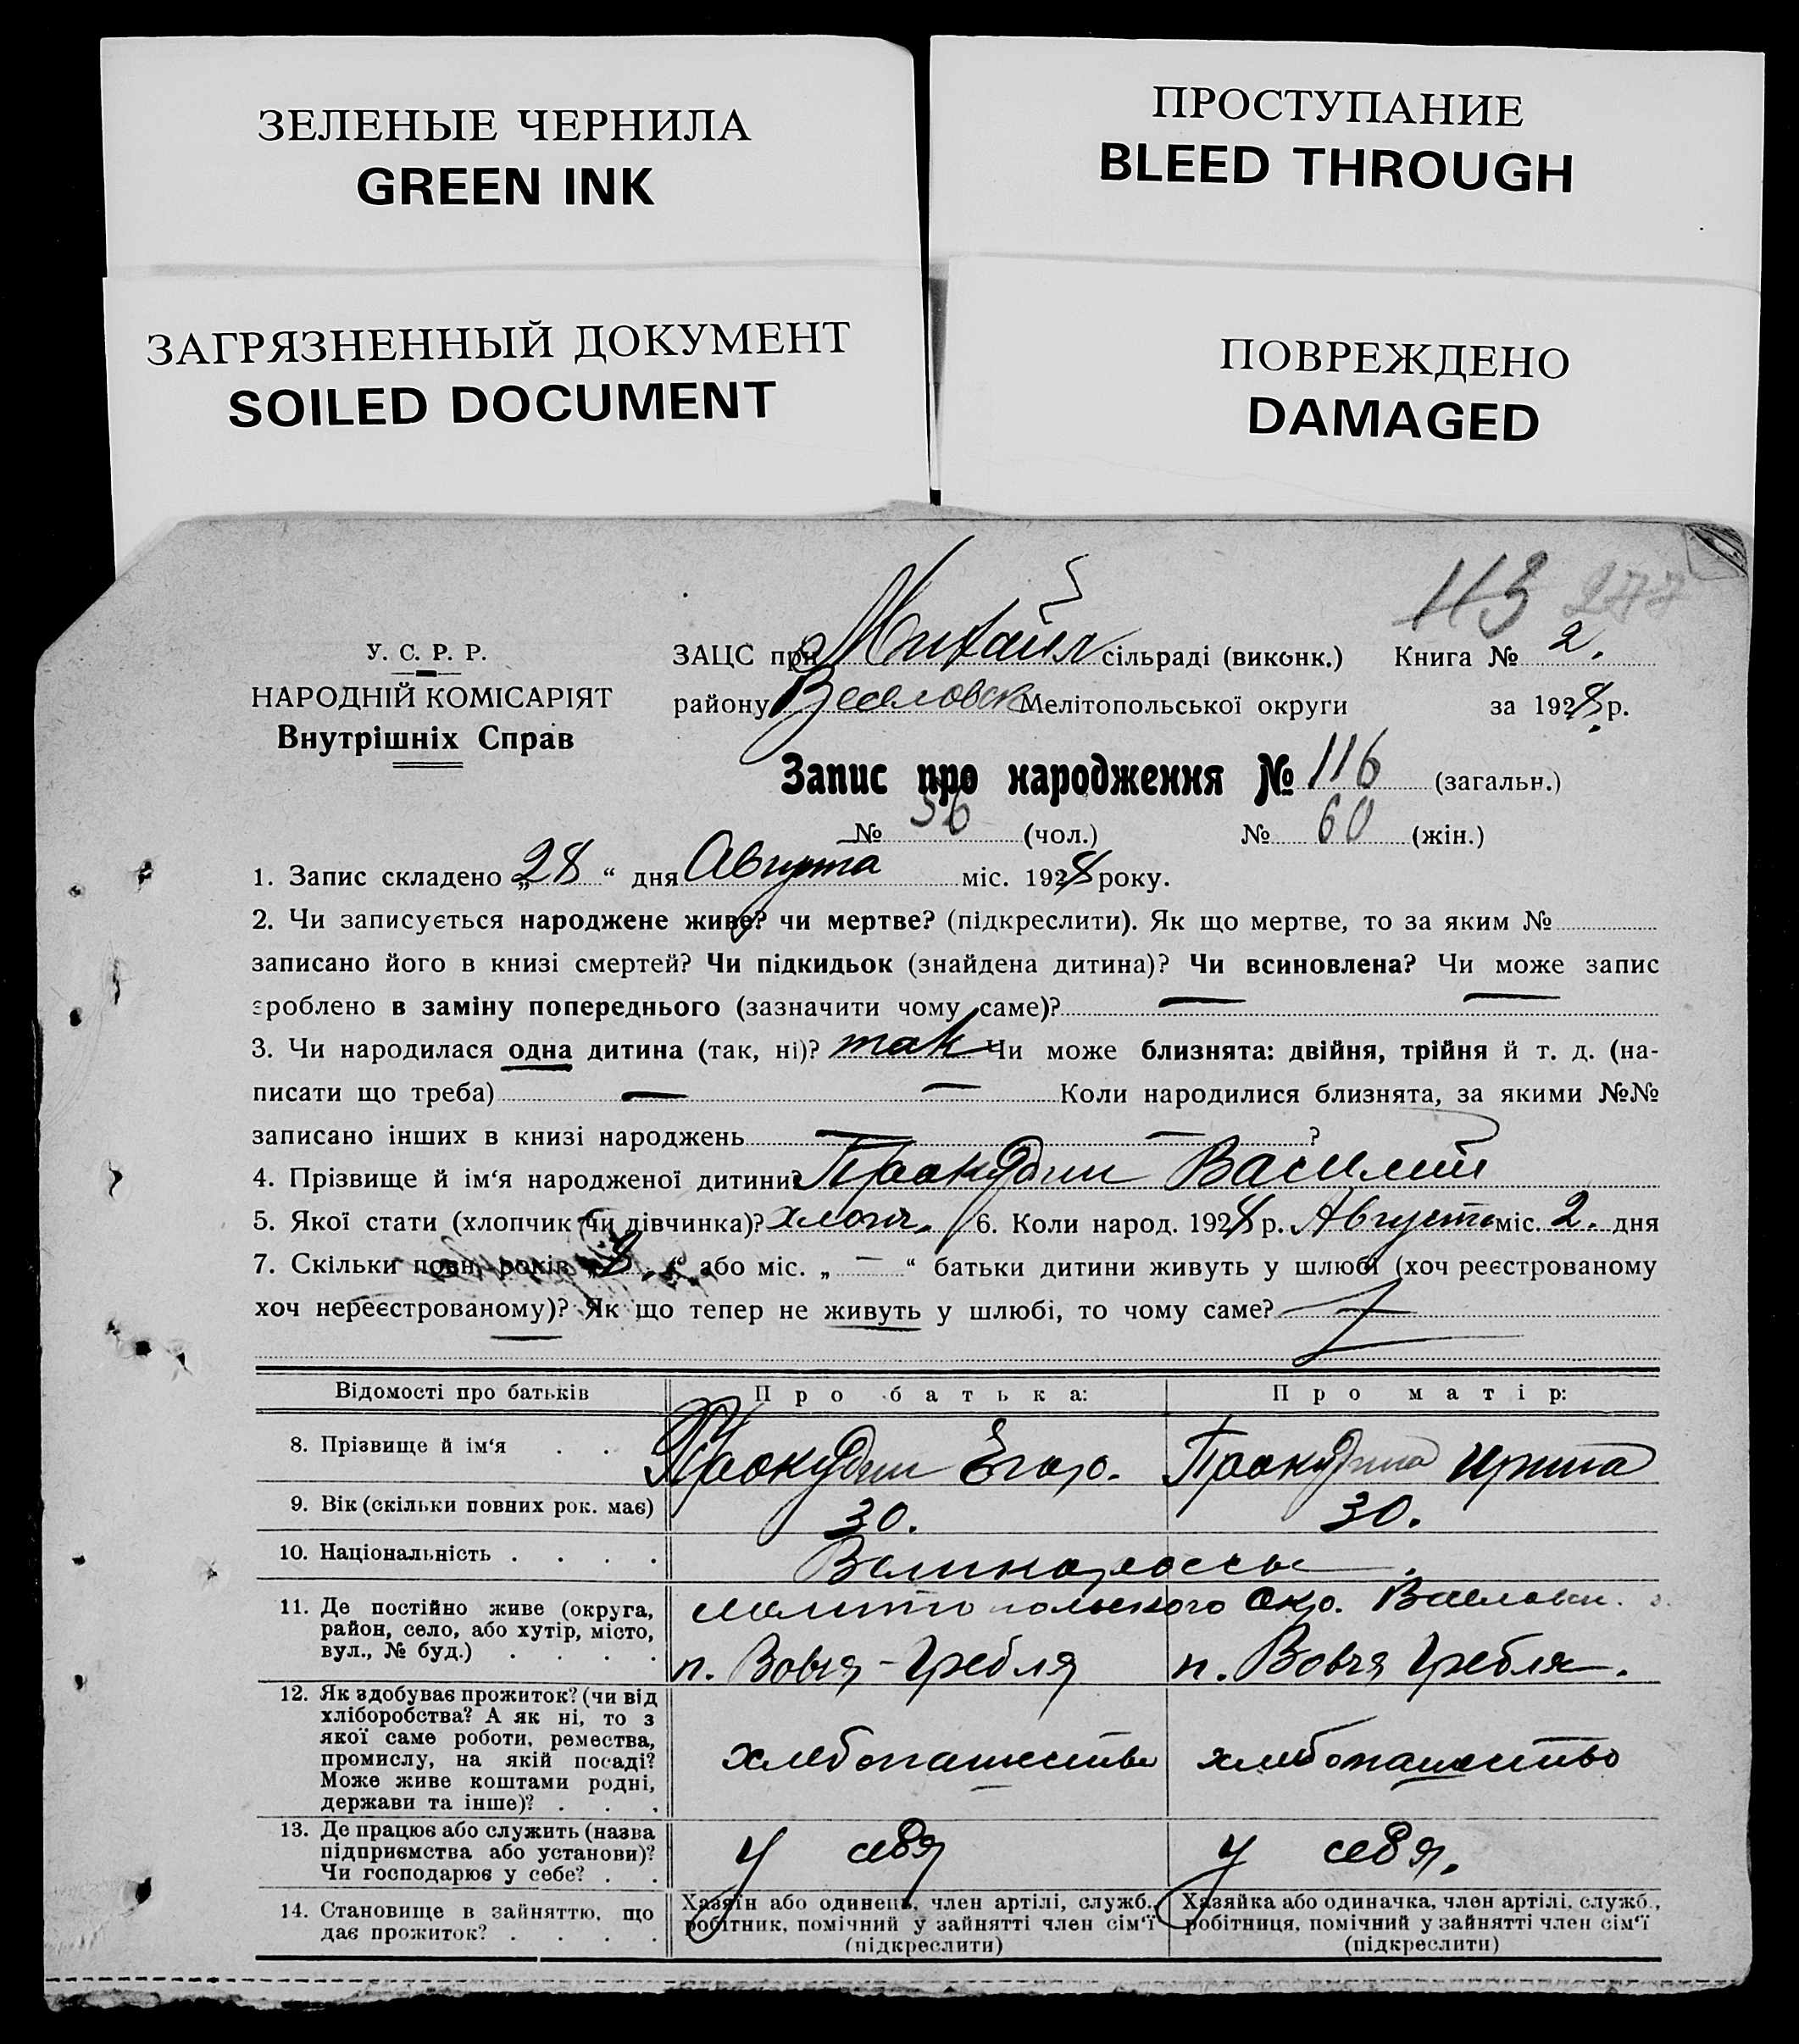 ЗЕЛЕНЫЕ ЧЕРНИЛА
GREEN INK
ПРОСТУПАНИЕ
BLEED THROUGH
ЗАГРЯЗНЕННЫЙ ДОКУМЕНТ
SOILED DOCUMENT
ПОВРЕЖДЕНО
DAMAGED
113 277
У. С. Р. Р.
НАРОДНІЙ КОМІСАРІЯТ
Внутрішніх Справ
ЗАЦС при Михайл сільраді (виконк.) Книга № 2.
району Веселовск Мелітопольської округи за 1928 р.
Запис про народження № 116 (загальн.)
№ 56 (чол.) № 60 (жін.)
1. Запис складено „28“ дня Августа міс. 1928 року.
2. Чи записується народжене живе? чи мертве? (підкреслити). Як що мертве, то за яким №
записано його в книзі смертей? Чи підкидьок (знайдена дитина)? Чи всиновлена? Чи може запис
зроблено в заміну попереднього (зазначити чому саме)? — —
3. Чи народилася одна дитина (так, ні)? так Чи може близнята: двійня, трійня й т. д. (на-
писати що треба) — — Коли народилися близнята, за якими №№
записано інших в книзі народжень — — ?
4. Прізвище й ім‘я народженої дитини? Прокудин Василий
5. Якої стати (хлопчик чи дівчинка)? хлопч. 6. Коли народ. 1928 р. Августа міс. 2. дня
7. Скільки повн. років „8.“ або міс. „—“ батьки дитини живуть у шлюбі (хоч реєстрованому
хоч нереєстрованому)? Як що тепер не живуть у шлюбі, то чому саме?
Відомості про батьків Про батька: Про матір:
8. Прізвище й ім‘я . . Прокудин Егор. Прокудина Ирина
9. Вік (скільки повних рок. має) 30. 30.
10. Національність . . . . Великороссы.
11. Де постійно живе (округа, район, село, або хутір, місто, вул., № буд.) . . . .
Мелитопольского Окр. Веселовск.
п. Вовчя-Гребля п. Вовчя Гребля.
12. Як здобуває прожиток? (чи від хліборобства? А як ні, то з якої саме роботи, ремества, промислу, на якій посаді? Може живе коштами родні, держави та інше)? . . .
хлебопашество хлебопашество
13. Де працює або служить (назва підприємства або установи)? Чи господарює у себе? . .
у себя у себя.
14. Становище в зайняттю, що дає прожиток? . . . .
Хазяїн або одинець, член артілі, служб., робітник, помічний у зайнятті член сім‘ї (підкреслити)
Хазяйка або одиначка, член артілі, служб., робітниця, помічний у зайнятті член сім‘ї (підкреслити)